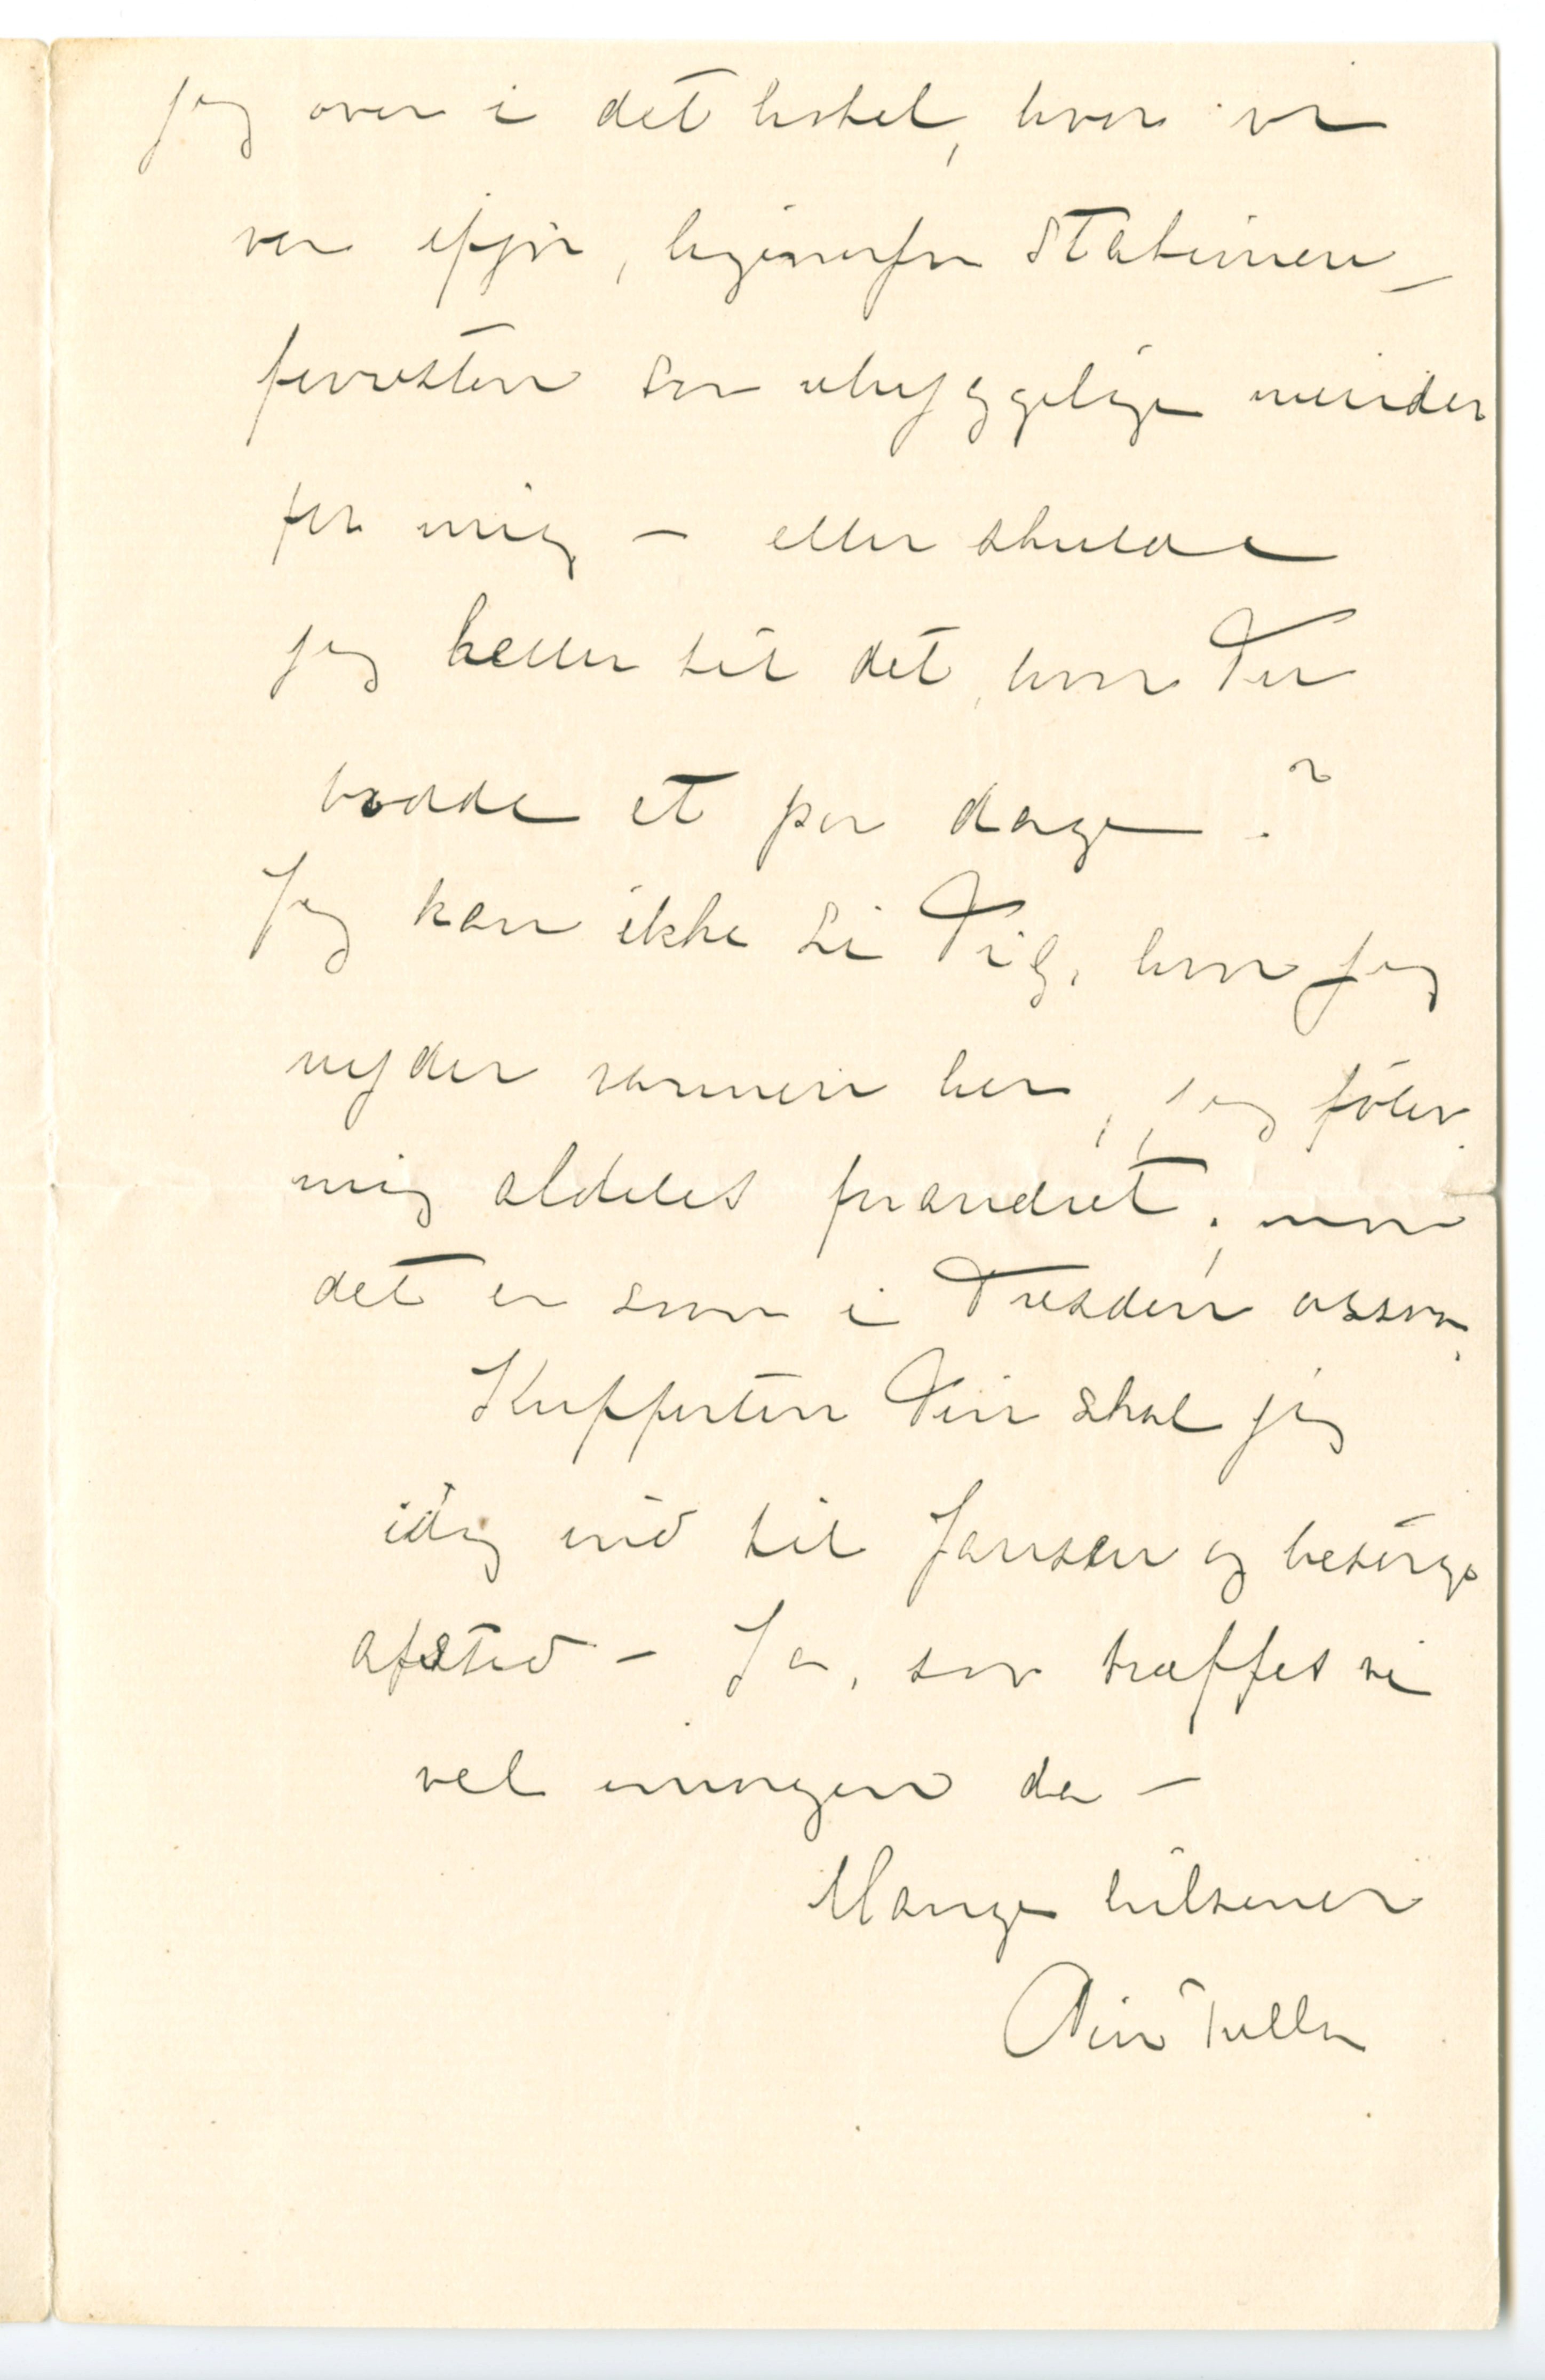 jeg over i det hotel, hvor vi
var ifjor, ligeoverfor Stationen –
forresten saa uhyggelige minder
for mig – eller skulde
jeg heller til det, hvor Du
bodde et par dage?
Jeg kan ikke si Dig, hvor jeg
nyder varmen her, jeg föler
mig aldeles forandret; men
det er som i Dresden ogsaa.
Kufferten Din skal jeg
idag ind til Jansen og besörge
afsted – Ja, saa træffes vi
vel imorgen da –
Mange hilsener
Din Tulla